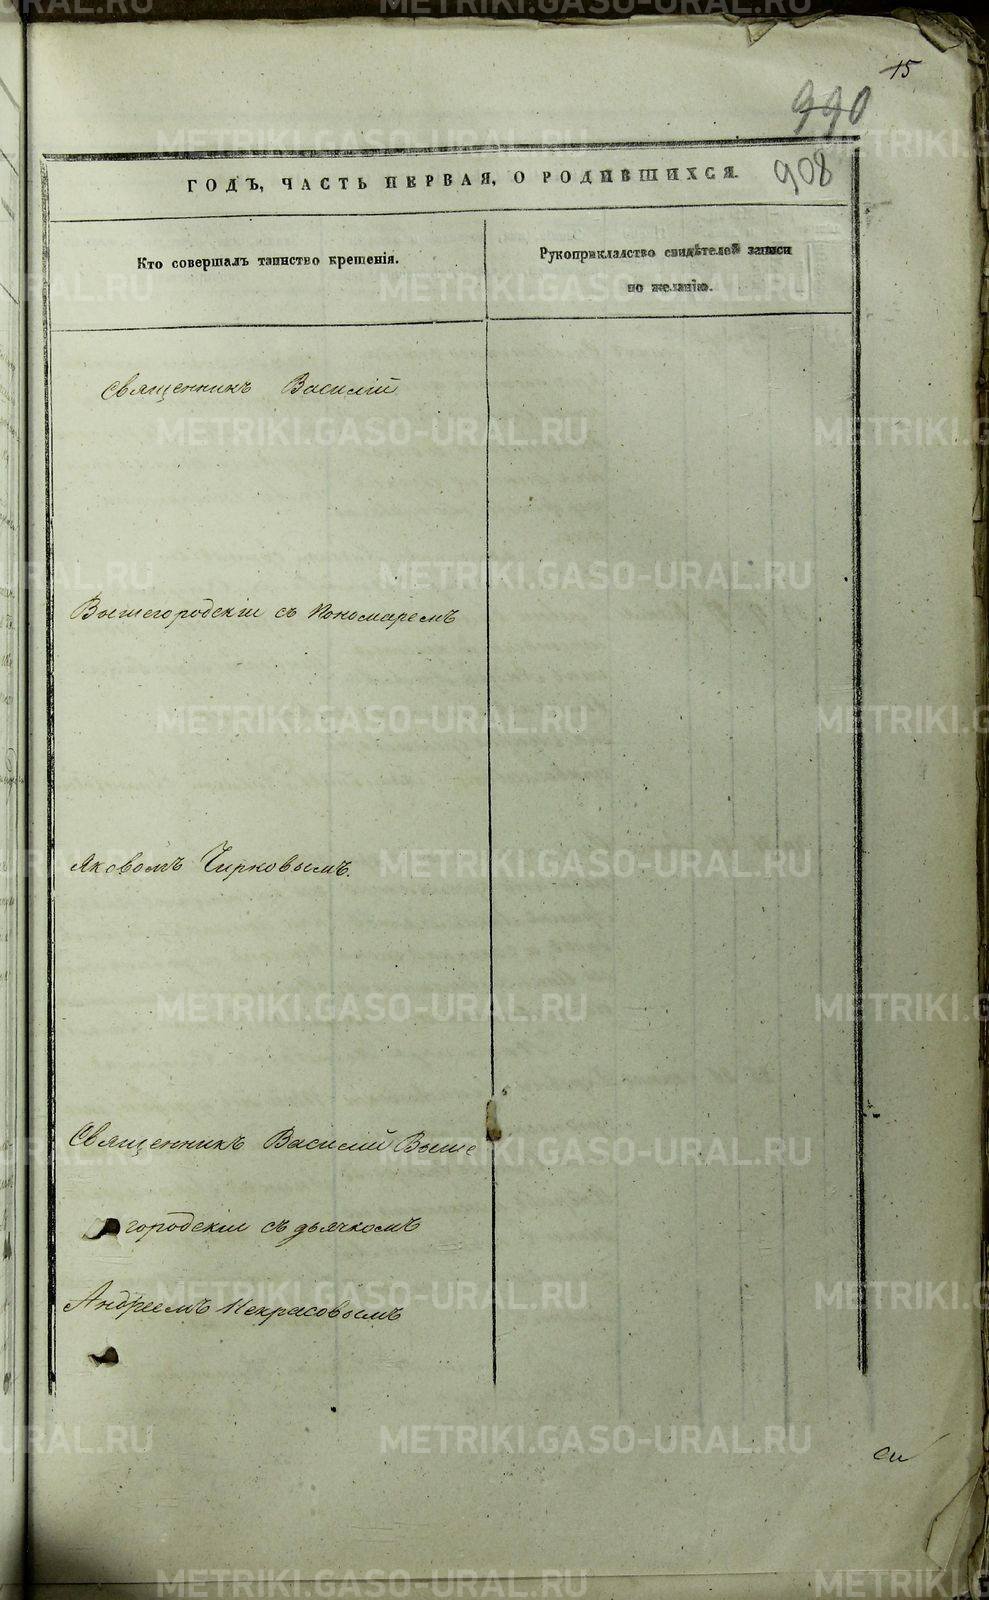 15
990
908
ГОДЪ, ЧАСТЬ ПЕРВАЯ, О РОДИВШИХСЯ.
Кто совершалъ таинство крещенія.
Рукоприкладство свидѣтелей записи
по желанію.
Священникъ Василій
Вышегородскій съ Пономаремъ
Яковомъ Чирковымъ.
Священникъ Василій Выше
городскій съ дьячкомъ
Андреемъ Некрасовымъ
METRIKI.GASO-URAL.RU